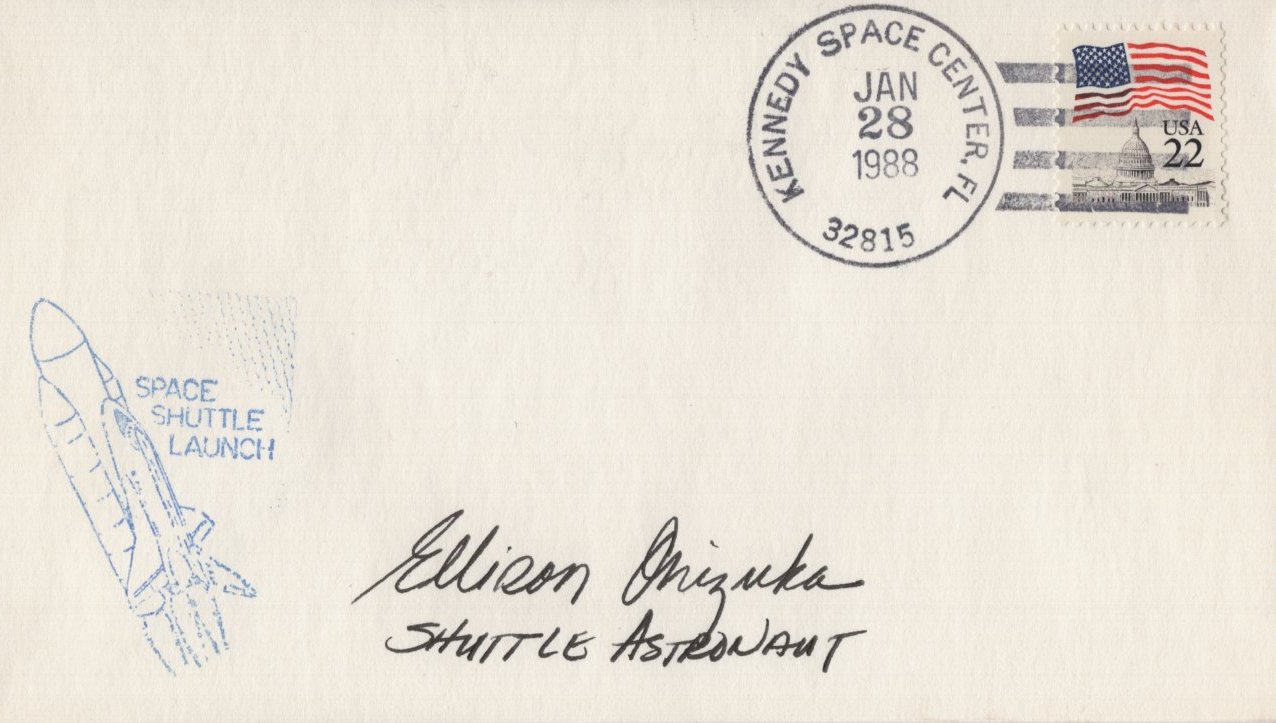 KENNEDY SPACE CENTER, FL
JAN
28
1988
32815
USA
22
SPACE
SHUTTLE
LAUNCH
Ellison Onizuka
SHUTTLE ASTRONAUT